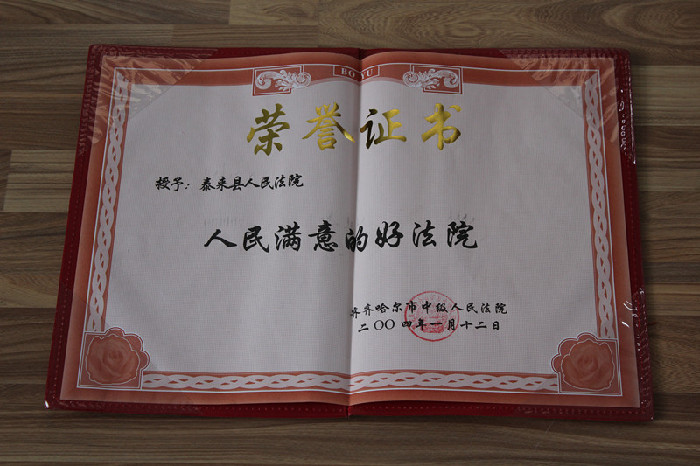 荣誉证书
授予：泰来县人民法院
人民满意的好法院
齐齐哈尔市中级人民法院
二〇〇四年一月十二日